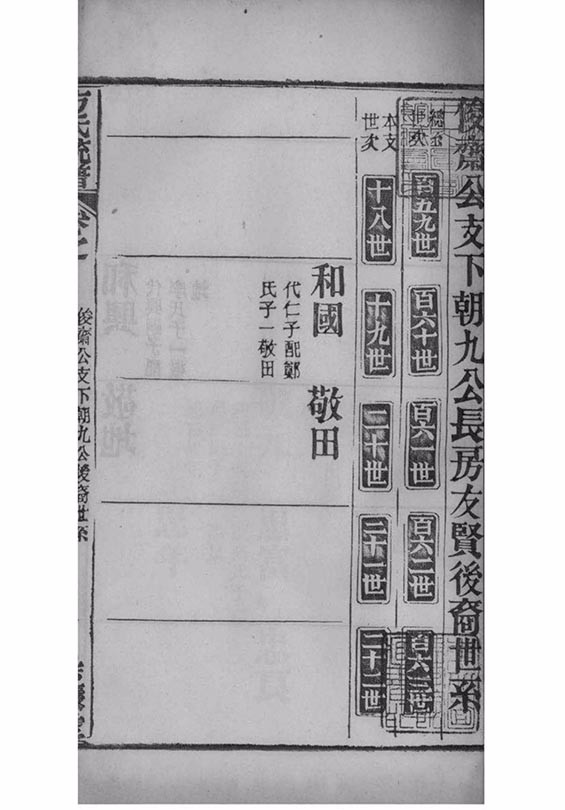 俊齋公支下朝九公長房友賢後裔世系
百五九世
百六十世
百六一世
百六二世
百六三世
本支世次
十八世
十九世
二十世
二十一世
二十二世
和國
代仁子配鄭
氏子一敬田
敬田
俊齋公支下朝九公後裔世系